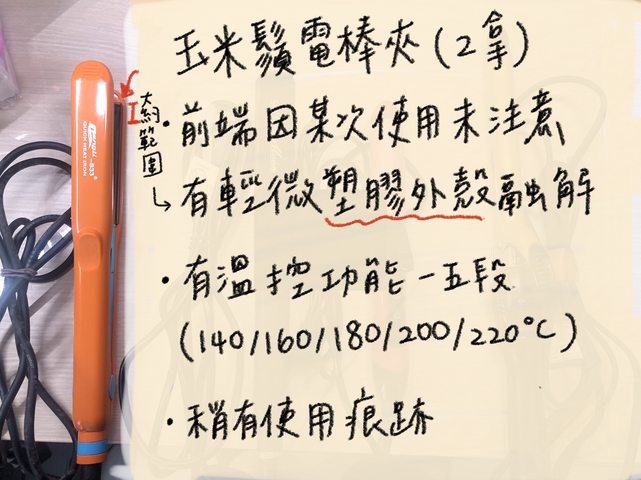 玉米鬚電棒夾(2拿)
大約範圍
・前端因某次使用未注意
↳有輕微塑膠外殼融解
・有溫控功能－五段
(140/160/180/200/220°C)
・稍有使用痕跡
QUICK HEAT IRON